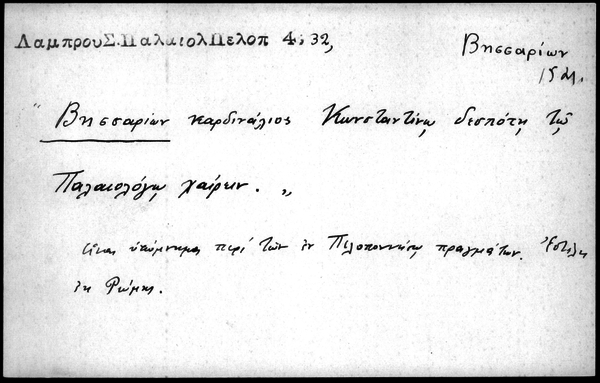 ΛαμπρουΣ.ΠαλαιολΠελοπ 4,32,
Βησσαρίων
"Βησσαρίων καρδινάλιος Κωνσταντίνῳ δεσπότῃ τῷ
Παλαιολόγῳ χαίρειν. „
Είναι υπόμνημα περί των εν Πελοποννήσῳ πραγμάτων.
εκ Ρώμης.